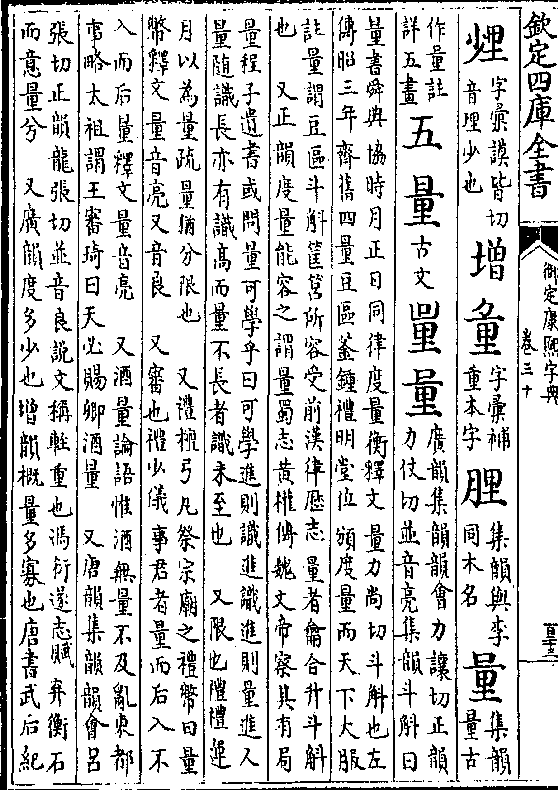 欽定四庫全書
御定康熙字典
卷三十
𨤥字彙謨皆切音埋少也 增𨤦字彙補重本字 𨤲集韻與李同木名 量集韻量古
作量註詳五畫
五量古文𣊫量廣韻集韻韻會力讓切正韻力仗切並音亮集韻斗斛曰
量書舜典協時月正日同律度量衡釋文量力尚切斗斛也左
傳昭三年齊舊四量豆區釜鍾禮明堂位頒度量而天下大服
註量謂豆區斗斛筐筥所容受前漢律歷志量者龠合升斗斛
也 又正韻度量能容之謂量蜀志黄權傳魏文帝察其有局
量程子遺書或問量可學乎曰可學進則識進識進則量進人
量隨識長亦有識高而量不長者識未至也 又限也禮禮運
月以為量疏量猶分限也 又禮檀弓凡祭宗廟之禮幣曰量
幣釋文量音亮又音良 又審也禮少儀事君者量而后入不
入而后量釋文量音亮 又酒量論語惟酒無量不及亂東都
事略太祖謂王審琦曰天必賜卿酒量 又唐韻集韻韻會呂
張切正韻龍張切並音良説文稱輕重也馮衍遂志賦弃衡石
而意量兮 又廣韻度多少也增韻概量多寡也唐書武后紀